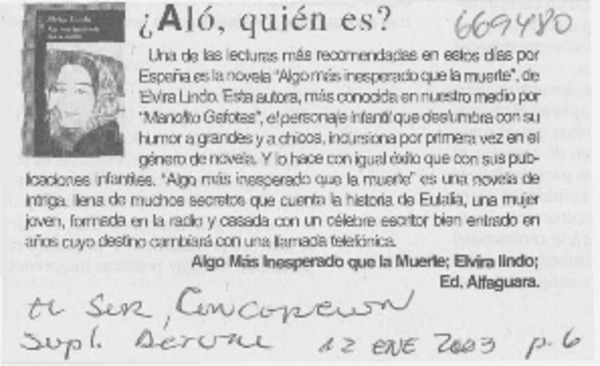 ¿Aló, quién es?
669480
Una de las lecturas más recomendadas en estos días por
España es la novela "Algo más inesperado que la muerte", de
Elvira Lindo. Esta autora, más conocida en nuestro medio por
"Manolito Gafotas", el personaje infantil que deslumbra con su
humor a grandes y a chicos, incursiona por primera vez en el
género de novela. Y lo hace con igual éxito que con sus pub-
licaciones infantiles. "Algo más inesperado que la muerte" es una novela de
intriga, llena de muchos secretos que cuenta la historia de Eulalia, una mujer
joven, formada en la radio y casada con un célebre escritor bien entrado en
años cuyo destino cambiará con una llamada telefónica.
Algo Más Inesperado que la Muerte; Elvira lindo;
Ed. Alfaguara.
El Sur, Concepción
Supl. 12 ENE 2003 p. 6